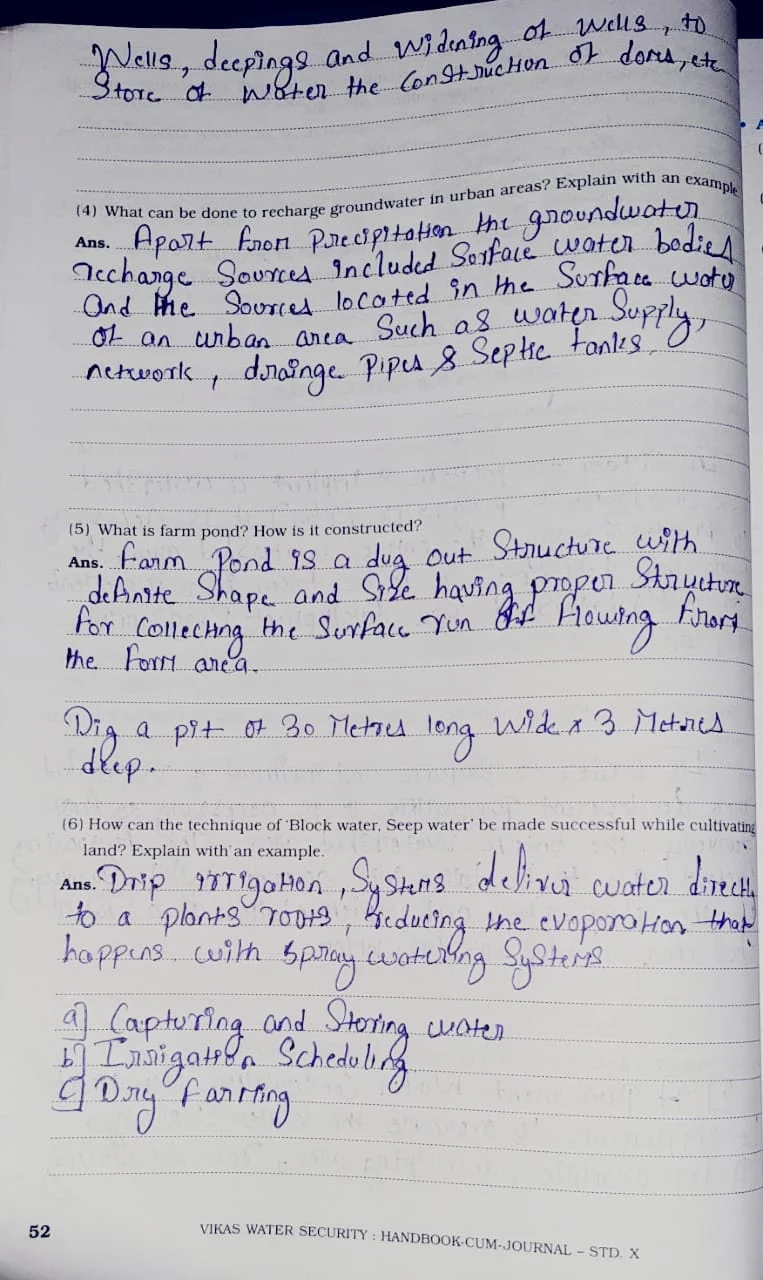 Wells, deepings and widening of wells, to
Store of water the construction of doms, etc
(4) What can be done to recharge groundwater in urban areas? Explain with an example
Ans. Apart from Precipitation the groundwater
recharge Sources included Sorface water bodies
and the Sources located in the Surface water
of an urban area Such as water Supply,
network, drainge Pipes & Septic tanks.
(5) What is farm pond? How is it constructed?
Ans. Farm Pond is a dug out Structure with
definite Shape and Size having proper Structure
for collecting the Surface run off flowing from
the form area.
Dig a pit of 30 Metres long wide x 3 Metres
deep.
(6) How can the technique of 'Block water, Seep water' be made successful while cultivating
land? Explain with an example.
Ans. Drip irrigation, Systems deliver water directly
to a plants roots, reducing the evoporation that
happens with spray watering Systems
a] Capturing and Storing water
b] Irrigation Scheduling
c] Dry farming
52
VIKAS WATER SECURITY : HANDBOOK-CUM-JOURNAL – STD. X